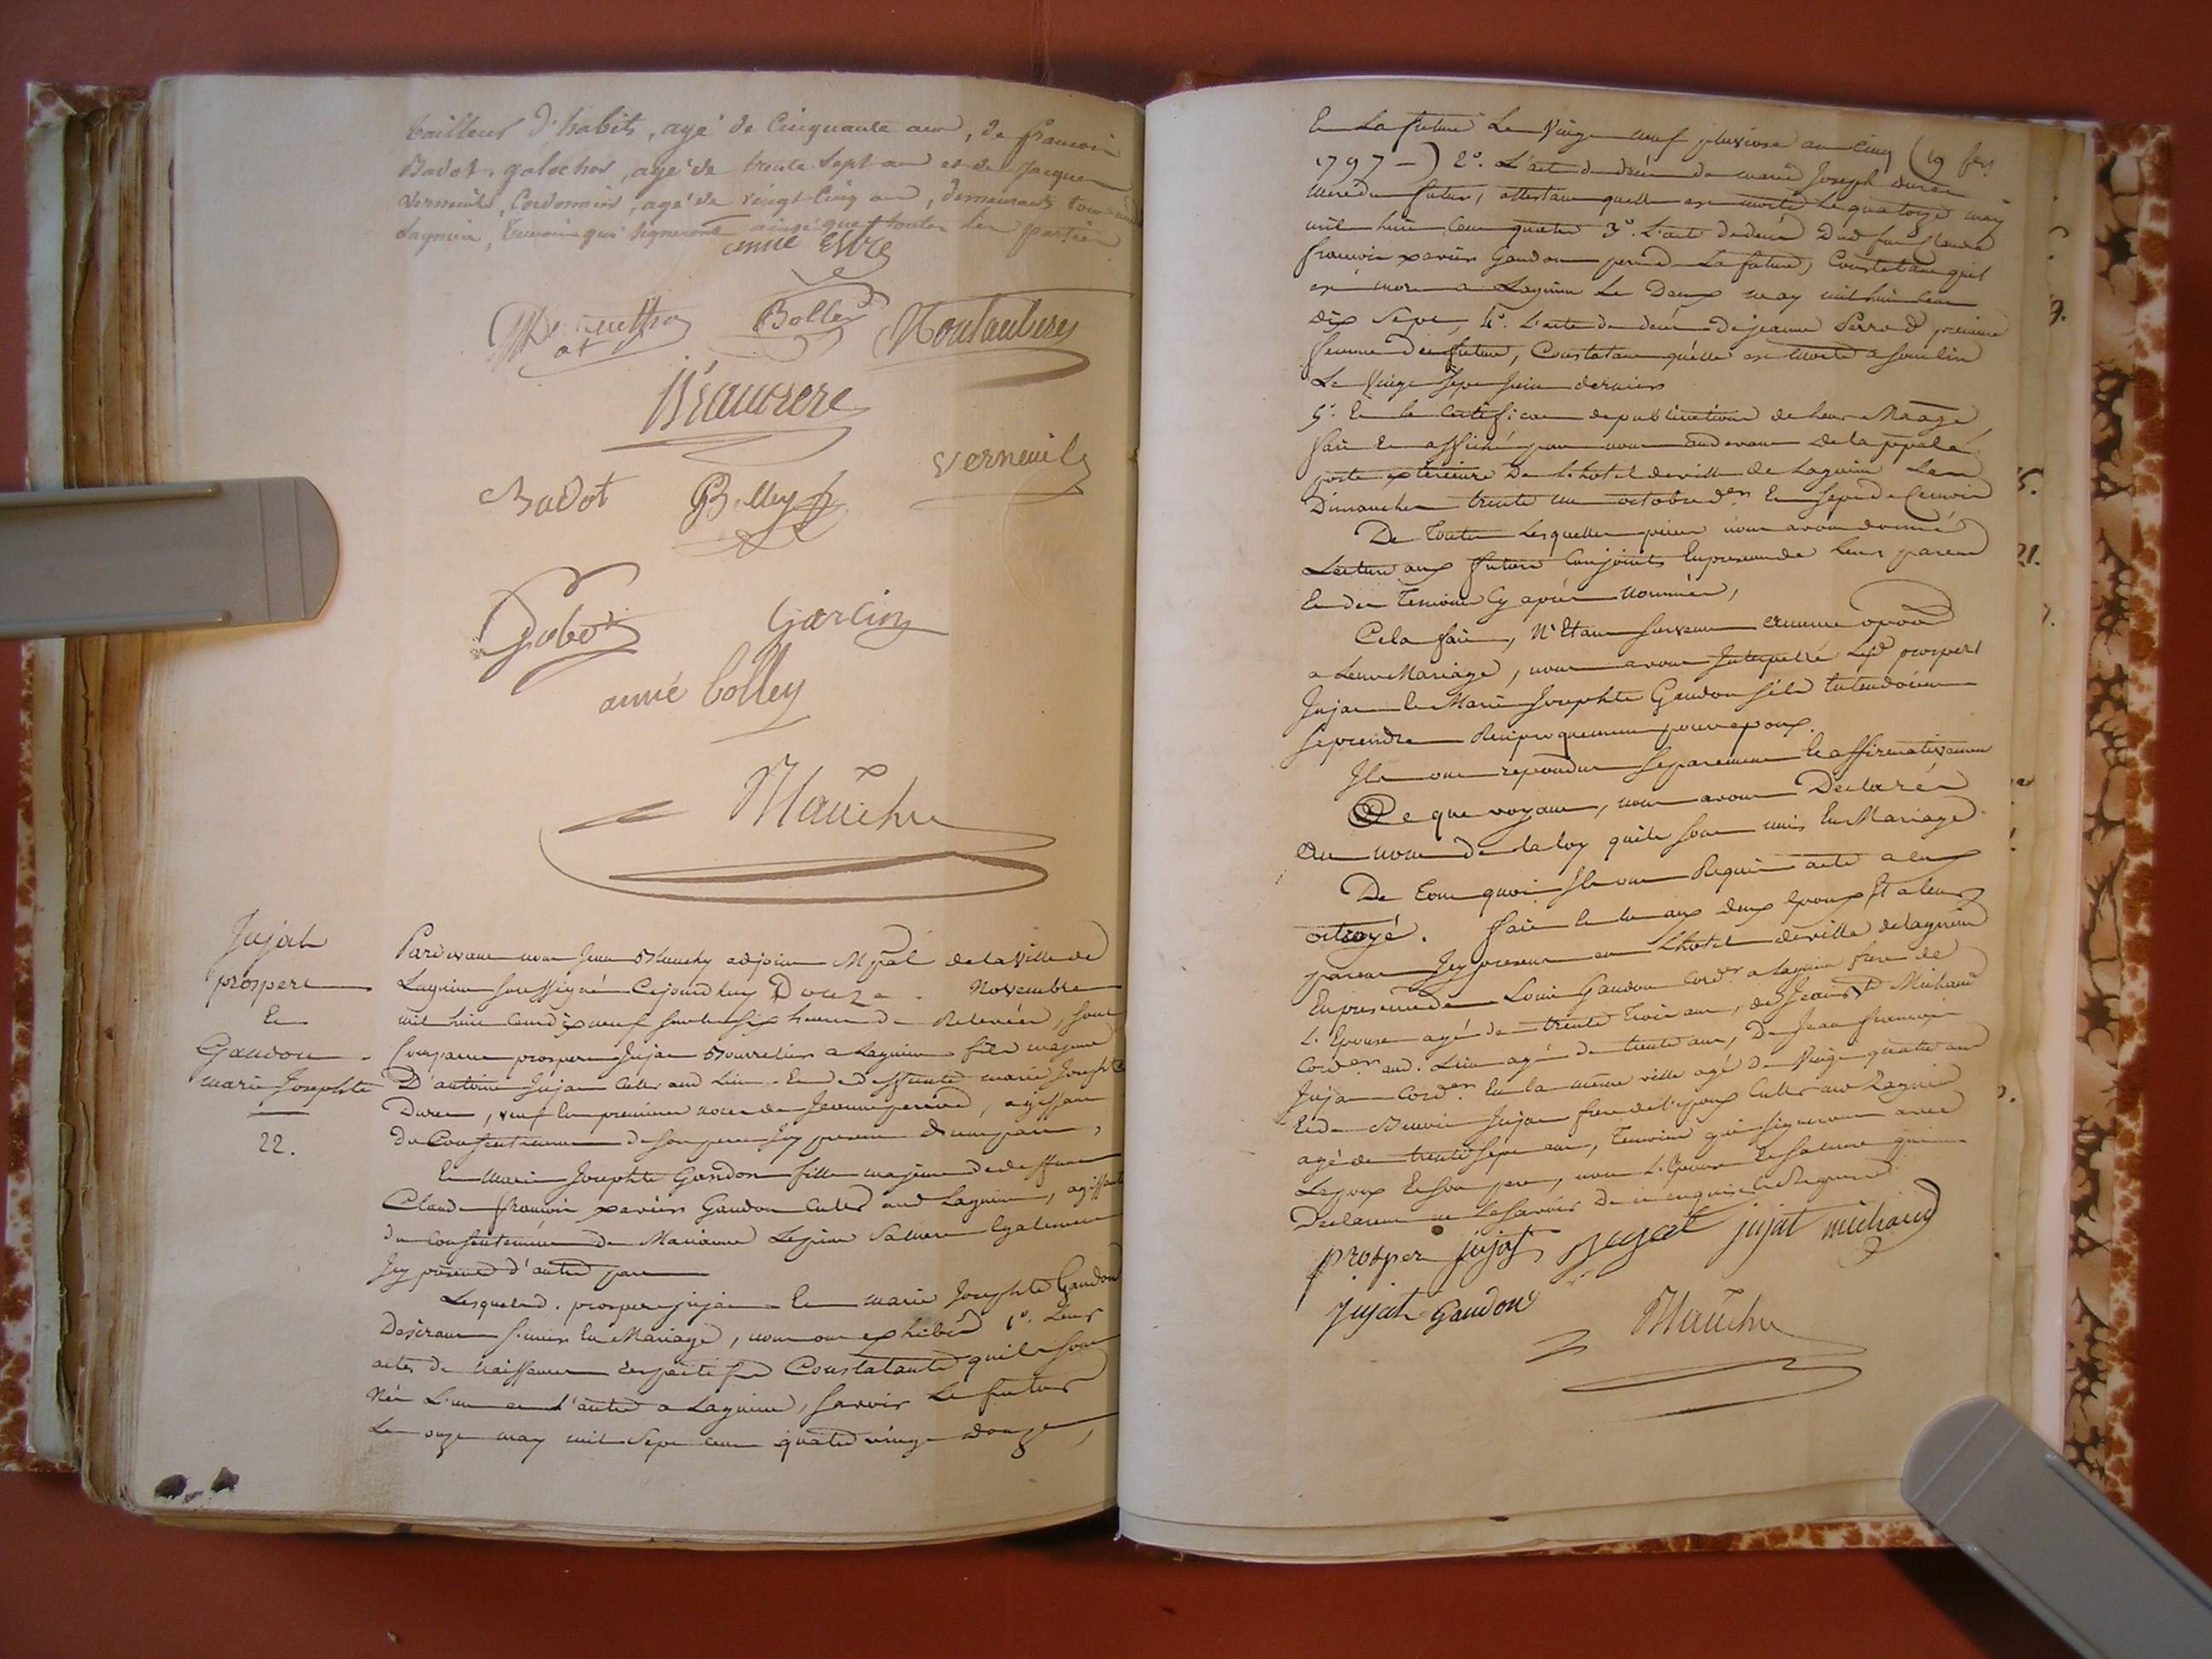 tailleur d'habits, agé de Cinquante ans, de francois
Badot, galocher, agé de trente sept ans et de Jacques
Verneuil, Cordonnier, agé de vingt Cinq ans, demeurants tous
Lagnieu, temoins qui signeront ainsi que toutes les parties
anne
Bolley Montaubrey
Beauvrere
Badot Bolley Verneuil
Gobet Garcin
anne bolley
Mauchy
Jujat
prospere
Et
Gaudon
marie Josephte
22.
Pardevant nous Jean Mauchy adjoint Mpal de la Ville de
Lagnieu soussigné Cejourdhuy Douze Novembre
mil huit Cent dix neuf sur les six heures de Relevée, sont
Comparus prospere Jujat Bourrelier a Lagnieu fils majeur
D'antoine Jujat Cultr aud. lieu Et de deffunte marie Josephte
Duret, veuf En premieres noces de Jeanne perrod, agissant
du Consentement de son pere Icy present d'une part,
Et Marie Josephte Gandon fille majeure de deffunt
Claude francois xavier Gaudon Cultr aud Lagnieu, agissante
du Consentement de Marianne Lepine Sa mere Egalement
Icy presente d'autre part
Lesquels d. prospere jujat Et marie Josephte Gaudon
Desirant s'unir En Mariage, nous ont exhibés 1°. Leurs
actes de Naissance respectifs Constatants qu'ils sont
Nés L'un et l'autre a Lagnieu, savoir Le futur
Le onze may mil sept cent quatre vingt douze,
Et La future Le Vingt neuf pluviose an cinq (19 fer
1797 -) 2°. L'acte de décès de marie Joseph duret
mere du futur, attestant quelle est morte Le quatorze may
mil huit Cent quatre 3°. L'acte de deces Dud feu Claude
francois xavier Gaudon pere de La future, Constatant quil
est mort a Lagnieu Le Deux may mil huit Cent
dix Sept, 4°. L'acte de deces de jeanne Perrod premiere
femme du futur, Constatant quelle est morte a
Le Vingt sept Juin dernier
5°. Et le Certificat de publications de leur Maage
fait Et affiché par nous audevant de la ppale
porte exterieure De L'hotel de ville de Lagnieu Les
Dimanches trente un octobre der Et Sept de Ce mois
De Toutes Lesquelles pieces nous avons donné
Lecture aux futurs Conjoints En presence de leurs parens
Et des Temoins Cy après nommés,
Cela fait, N'Etant survenu aucune oppon
a Leur Mariage, nous avons Interpellé Lesd prospert
Jujat Et Marie Josephte Gaudon s'ils Entendoient
se prendre Reciproquement pour epoux.
Ils ont repondus separement Et affirmativement
Ce que voyant, nous avons Declarés
Au nom de la loy quils sont unis En Mariage
De Tout quoi Ils ont Requis acte a eux
octroyé. Fait Et lu aux deux Epoux Et a leurs
parens Icy presens en L'hotel de ville de lagnieu
En presence de Louis Gaudon Cordr a Lagnieu frere de
L'Epouse agé de trente Trois ans, de Jean Michaud
Corder aud. Lieu agé de trente ans, De Jean francois
Jujat Corder En la même ville agé de Vingt quatre ans
Et de Benoit Jujat frere de l'epoux Cultr aud Lagnieu
agé de trente sept ans, Temoins qui signeront avec
Lepoux Et son pere, non L'Epouse Et sa mere qui
Declarent ne Le Savoir De ce enquises Et Requises
prosper jujat jujat jujat michaud
Jujat Gaudon
Mauchy